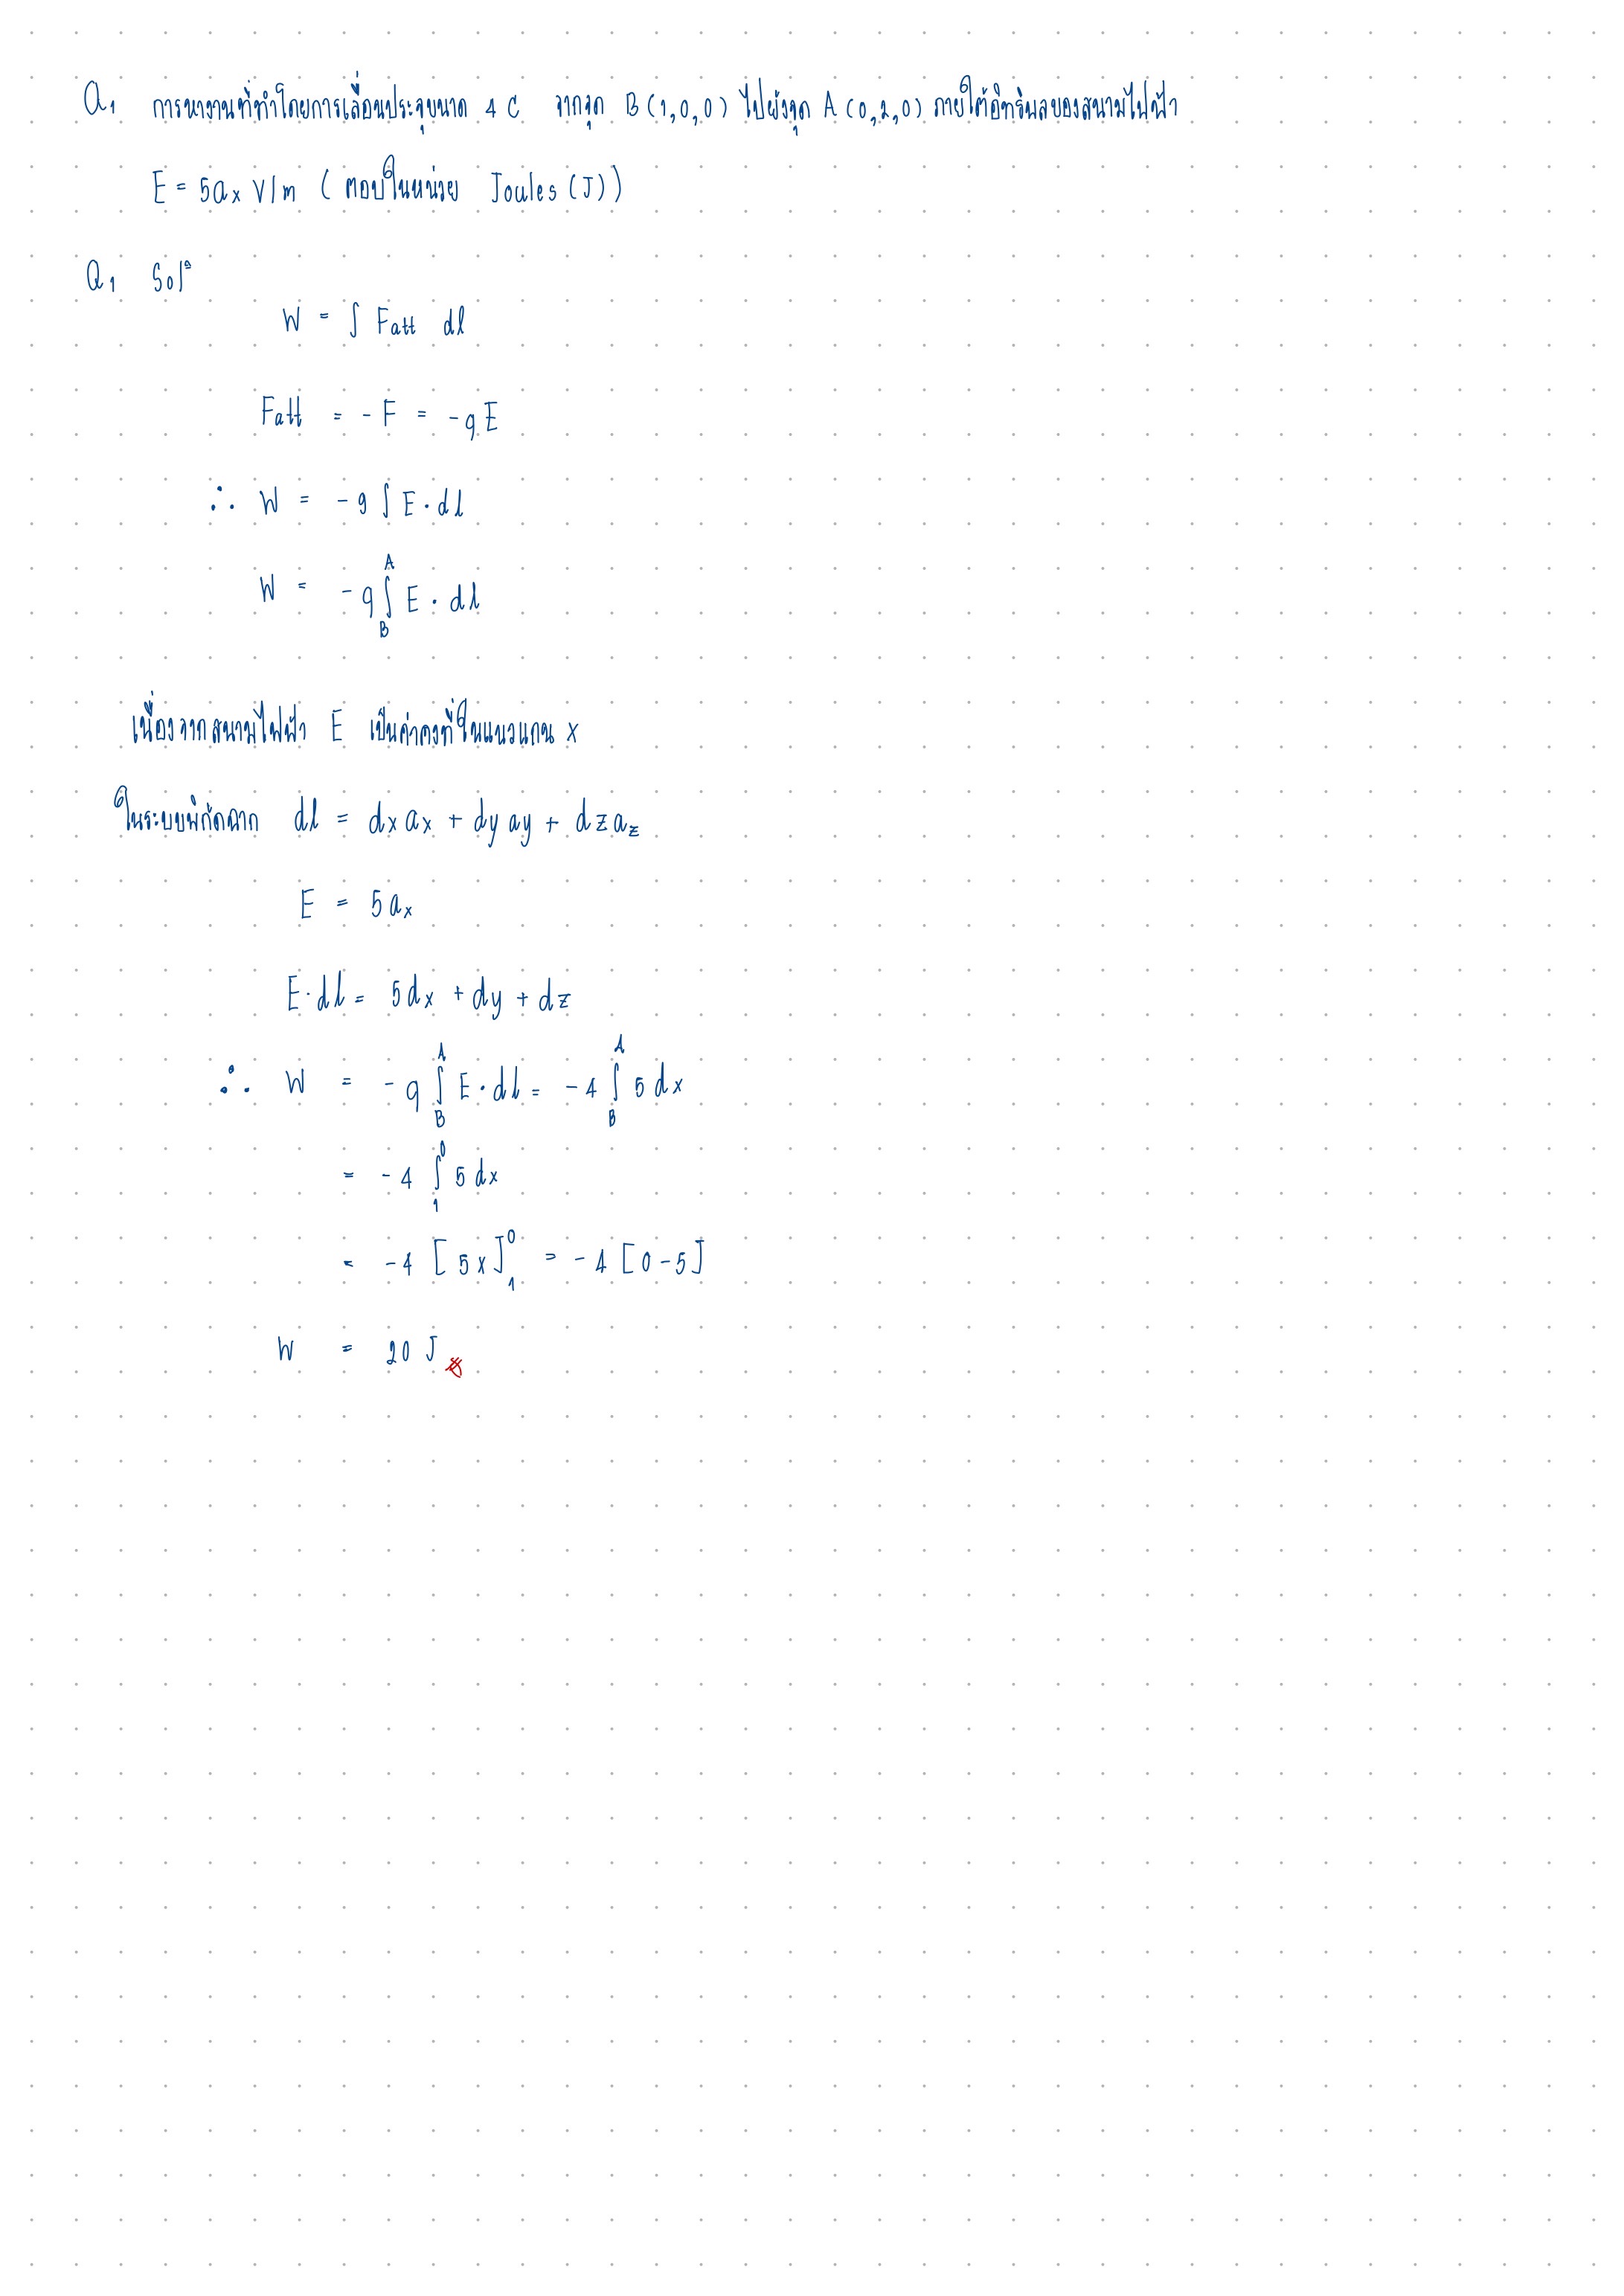 Q1 การหางานที่ทำโดยการเลื่อนประจุขนาด 4 C จากจุด B (1,0,0) ไปยังจุด A (0,2,0) ภายใต้อิทธิพลของสนามไฟฟ้า
E = 5ax V/m ( ตอบในหน่วย Joules (J) )
Q1 Solⁿ
W = ∫ Fatt dl
Fatt = - F = - qE
∴ W = - q ∫ E · dl
W = - q ∫_B^A E · dl
เนื่องจากสนามไฟฟ้า E เป็นค่าคงที่ในแนวแกน x
ในระบบพิกัดฉาก dl = dx ax + dy ay + dz az
E = 5 ax
E · dl = 5 dx + dy + dz
∴ W = - q ∫_B^A E · dl = - 4 ∫_B^A 5 dx
= - 4 ∫_1^0 5 dx
= - 4 [ 5x ]_1^0 = - 4 [ 0 - 5 ]
W = 20 J